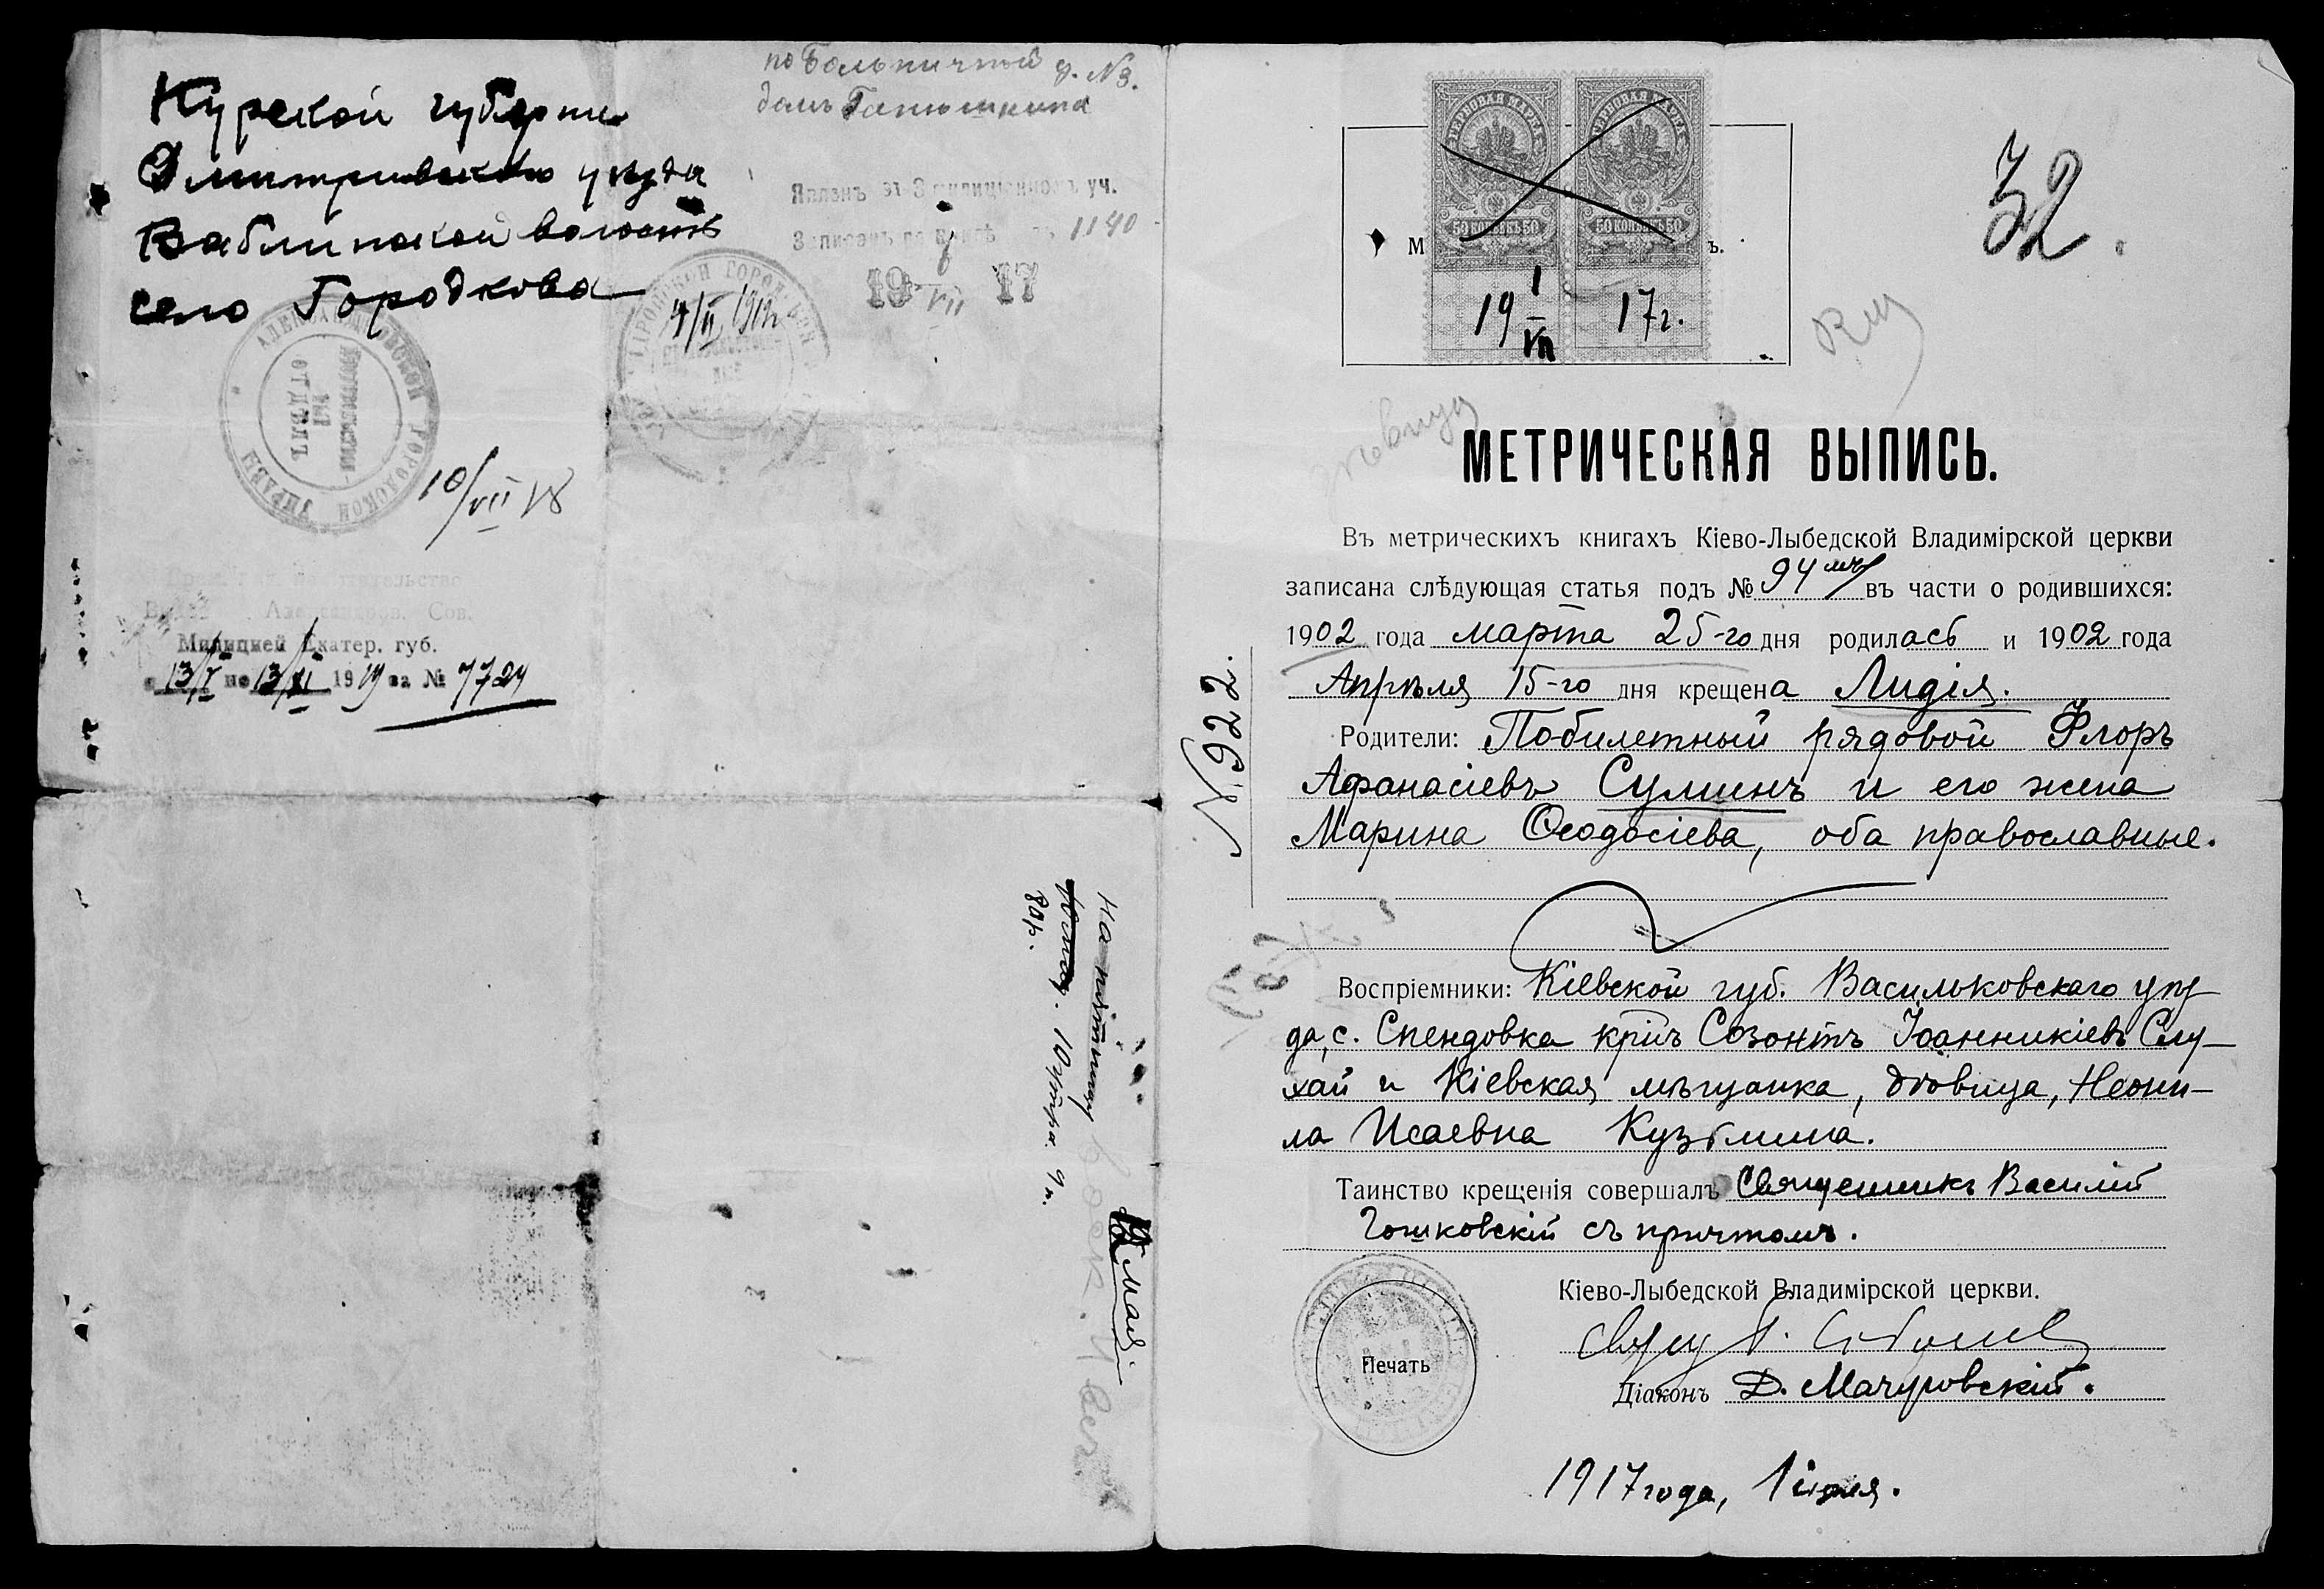 по Больничной у. №3.
домъ
Курской губернии
Дмитриевского уезда
Ваблинской волости
село Городкова
Явленъ въ 3 милиціонномъ уч.
Записанъ по книгѣ 1140
19 VII 17
4/II 1919г
АЛЕКСАНДРОВСКОЙ ГОРОДСКОЙ УПРАВЫ
ОТДѢЛЪ
10/VII 18
Алекса́ндров. Сов.
Милицией Екатер. губ.
с 13/V по 13/XI 1919 за № 7724
на пятницу
10 утра 9 м.
80р.
12 мая
32.
ГЕРБОВАЯ МАРКА ГЕРБОВАЯ МАРКА
50 КОПѢЕКЪ 50 50 КОПѢЕКЪ 50
М ъ.
19 1/VII 17г.
МЕТРИЧЕСКАЯ ВЫПИСЬ.
Въ метрическихъ книгахъ Кіево-Лыбедской Владимірской церкви
записана слѣдующая статья подъ № 94 мъ въ части о родившихся:
1902 года марта 25-го дня родилась и 1902 года
Апрѣля 15-го дня крещена Лидія.
Родители: Побилетный рядовой Флоръ
Афанасіевъ Суминъ и его жена
Марина Ѳеодосіева, оба православные.
№ 922.
Воспріемники: Кіевской губ. Васильковскаго уѣз-
да, с. Спендовка кр-нъ Созонтъ Іоанникіевъ Слу-
хай и Кіевская мѣщанка, дѣвица, Неони-
ла Исаевна Кузьмина.
Таинство крещенія совершалъ Священникъ Василій
Гошковскій съ причтомъ.
Кіево-Лыбедской Владимірской церкви.
Печать
Діаконъ Д. Мачуровскій.
1917 года, 1 іюля.